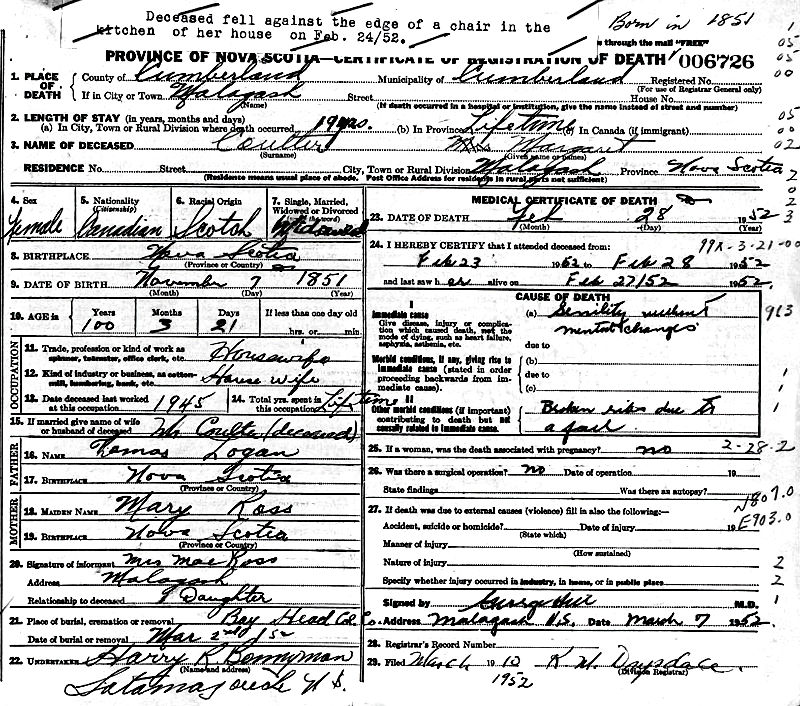 Deceased fell against the edge of a chair in the
kitchen of her house on Feb. 24/52.
Born in 1851
through the mail "FREE"
PROVINCE OF NOVA SCOTIA—CERTIFICATE OF REGISTRATION OF DEATH 006726
1. PLACE OF DEATH County of Cumberland Municipality of Cumberland Registered No.
(For use of Registrar General only)
If in City or Town Malagash Street House No.
(Name) (If death occurred in a hospital or institution, give the name instead of street and number)
2. LENGTH OF STAY (in years, months and days)
(a) In City, Town or Rural Division where death occurred 19 yrs. (b) In Province Lifetime (c) In Canada (if immigrant)
3. NAME OF DECEASED Coulter Mrs Margaret
(Surname) (Given name or names)
RESIDENCE No. Street City, Town or Rural Division Malagash Province Nova Scotia
(Residence means usual place of abode. Post Office Address for residents in rural parts not sufficient)
4. Sex Female
5. Nationality (Citizenship) Canadian
6. Racial Origin Scotch
7. Single, Married, Widowed or Divorced Widowed
8. BIRTHPLACE Nova Scotia
(Province or Country)
9. DATE OF BIRTH November 7 1851
(Month) (Day) (Year)
10. AGE in Years Months Days If less than one day old
100 3 21 hrs. or min.
OCCUPATION
11. Trade, profession or kind of work as spinner, teamster, office clerk, etc. Housewife
12. Kind of industry or business, as cotton-mill, lumbering, bank, etc. House wife
13. Date deceased last worked at this occupation 1945 14. Total yrs. spent in this occupation Lifetime
15. If married give name of wife or husband of deceased Wm Coulter (deceased)
FATHER
16. NAME Thomas Logan
17. BIRTHPLACE Nova Scotia
(Province or Country)
MOTHER
18. MAIDEN NAME Mary Ross
19. BIRTHPLACE Nova Scotia
(Province or Country)
20. Signature of informant Mrs Mae Ross
Address Malagash
Relationship to deceased Daughter
21. Place of burial, cremation or removal Bay Head Col. Co.
Date of burial or removal Mar 2nd 52
22. UNDERTAKER Harry R. Bonnyman
(Name and address)
Tatamagouche N S.
MEDICAL CERTIFICATE OF DEATH
23. DATE OF DEATH Feb 28 1952
(Month) (Day) (Year)
24. I HEREBY CERTIFY that I attended deceased from: 99X-3-21-00
Feb 23 1952 to Feb 28 1952
and last saw her alive on Feb 27/52 1952.
CAUSE OF DEATH
I
Immediate cause
Give disease, injury or complication which caused death, not the mode of dying, such as heart failure, asphyxia, asthenia, etc.
(a) Senility without mental changes
due to
Morbid conditions, if any, giving rise to immediate cause (stated in order proceeding backwards from immediate cause).
(b)
due to
(c)
II
Other morbid conditions (if important) contributing to death but not causally related to immediate cause.
Broken ribs due to
a fall
25. If a woman, was the death associated with pregnancy? no 2-28-2
26. Was there a surgical operation? no Date of operation 19
State findings Was there an autopsy?
N807.0
27. If death was due to external causes (violence) fill in also the following:—
E903.0
Accident, suicide or homicide? Date of injury 19
(State which)
Manner of injury
(How sustained)
Nature of injury
Specify whether injury occurred in industry, in home, or in public place
Signed by M.D.
Address Malagash N.S. Date March 7 1952.
28. Registrar's Record Number
29. Filed March 10 1952
(Division Registrar)